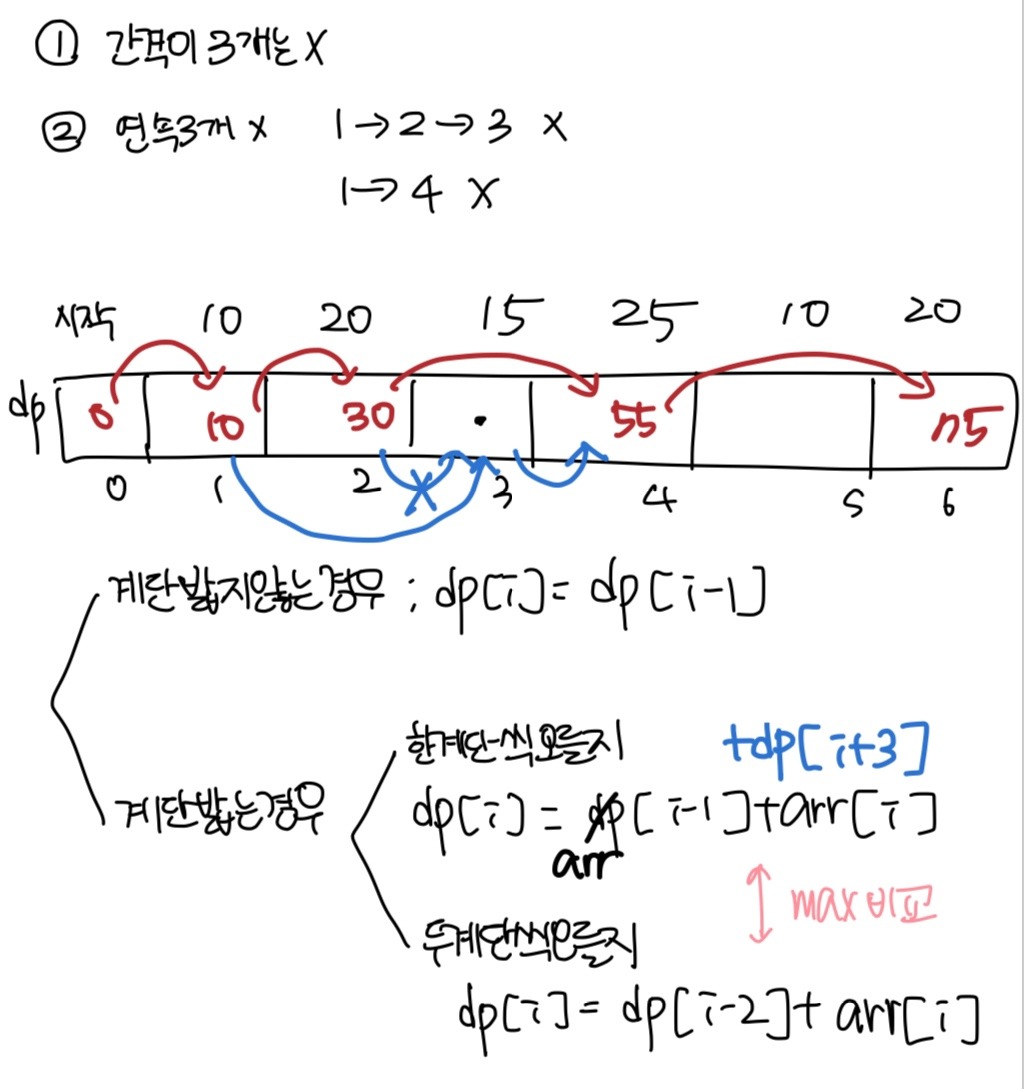 ① 간격이 3개는 X
② 연속3개 x 1→2→3 X
1→4 X
시작 10 20 15 25 10 20
dp 0 10 30 . 55 75
0 1 2 3 4 5 6
계단밟지않는경우 : dp[i] = dp[i-1]
한계단씩오를지 +dp[i+3]
계단밟는경우 dp[i] = dp[i-1]+arr[i]
arr
max 비교
두계단씩오를지
dp[i] = dp[i-2]+ arr[i]